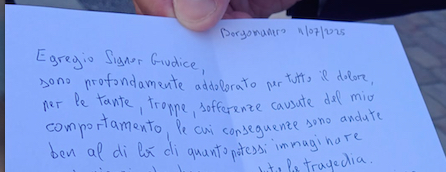 Borgomanero 11/07/2025
Egregio Signor Giudice,
sono profondamente addolorato per tutto il dolore,
per le tante, troppe, sofferenze causate dal mio
comportamento, le cui conseguenze sono andate
ben al di là di quanto potessi immaginare
la tragedia.